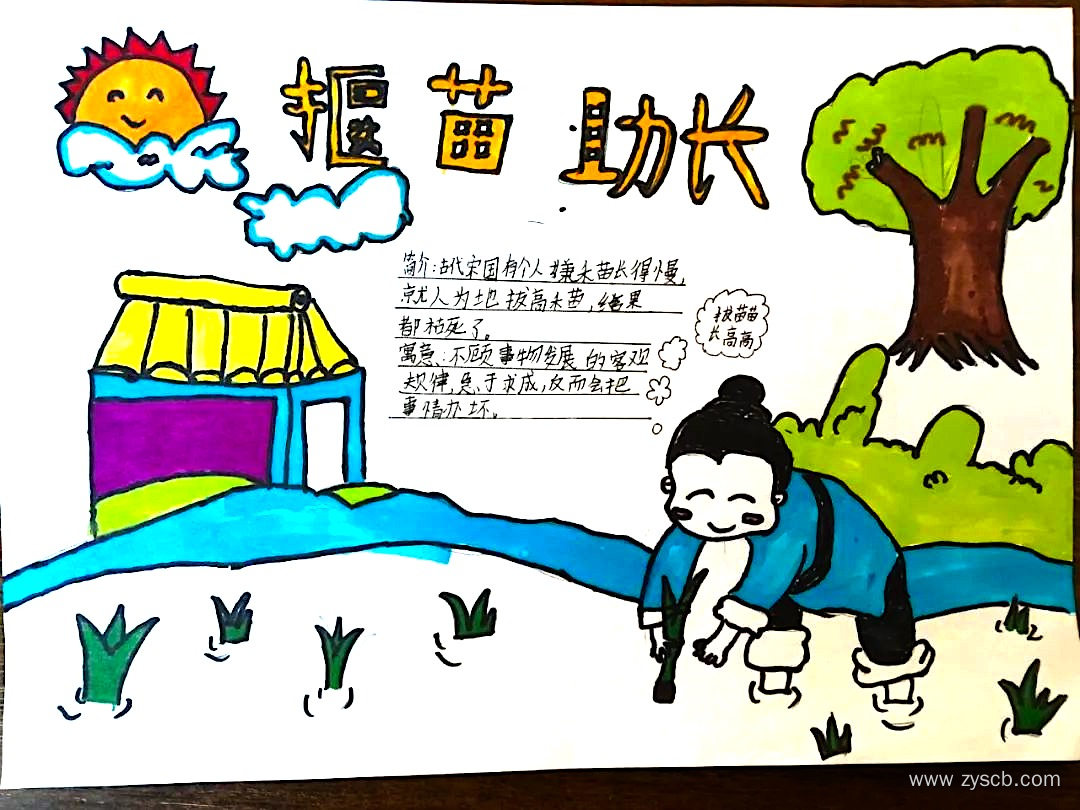 揠苗助长
简介:古代宋国有个人嫌禾苗长得慢,
就人为地拔高禾苗,结果
都枯死了。
寓意:不顾事物发展的客观
规律,急于求成,反而会把
事情办坏。
拔苗苗
长高高
www.zyscb.com